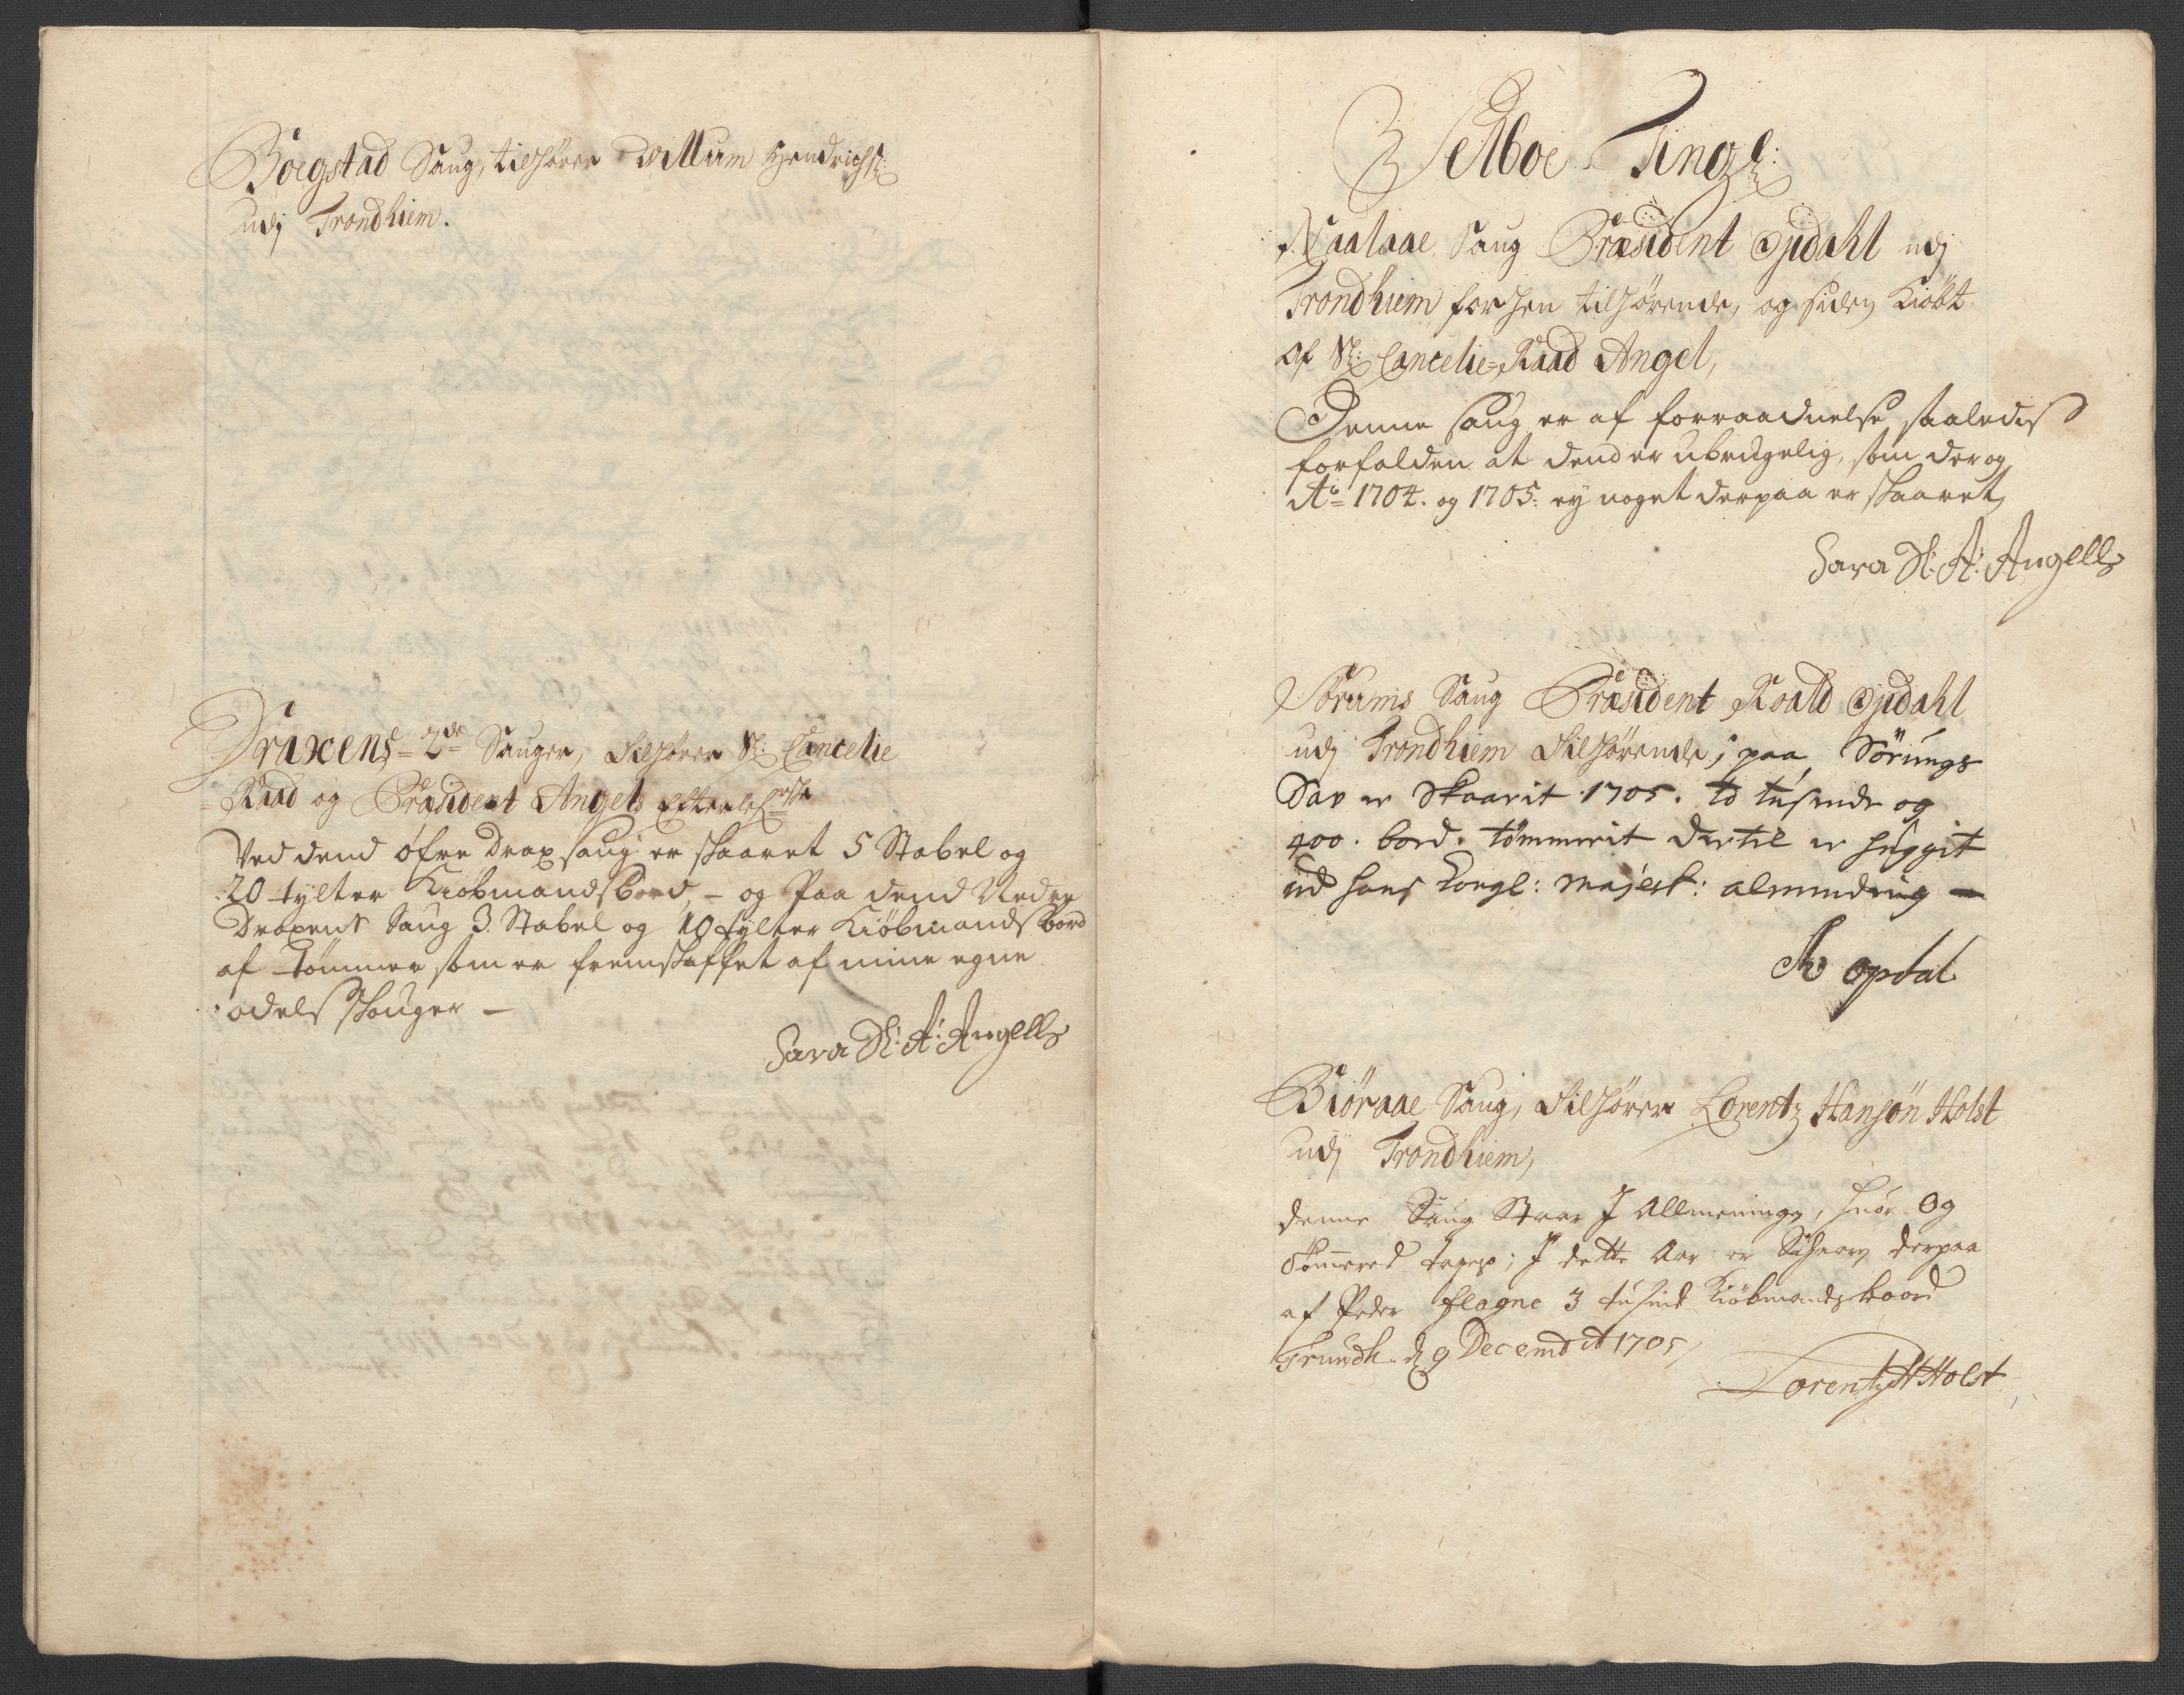 Boegstad Saug, tilhører Willum Hendrichs:
udj Trondhiem.
Draxens 2de Sauger, Tilhører Sl: Cancelie
Raad og Præsident Angels Efterlefverske
Ved dend øfre Drax saug er skaaret 5 Stabel og
20 tylter Kiøbmandsbord, - og Paa dend Nedre
Draxens Saug 3 Stabel og 10 tylter Kiøbmandsbord
af tømmer som er fremskaffet af mine egne
odels skouger -
Sara Sl: A: Angells
Selboe Tingl:
Saug Præsident Opdahl udj
Trondhiem forhen tilhørende, og siden Kiøbt
af Sl: Cancelie-Raad Angel,
Denne saug er af forraadnelse saaledis
forfalden at dend er ubrugelig, som der og
Ao 1704. og 1705. ey noget derpaa er skaaret
Sara Sl: A: Angells
Sørums Saug Præsident Roald Opdahl
udj Trondhiem Tilhørende, paa Sørungs
Sav er Skaarit 1705. to tusende og
400. bord. tømmerit dertil er huggit
ud hans Kongl: Majest: alminding -
R opdal
Biøraae Saug, Tilhører Lorentz Hansøn Holst
udj Trondhiem,
denne Saug Staar J Allmeningen, huor Og
Tømered tages; J dette Aar er Schaaren derpaa
af Peder Flagne 3 tusind Kiøbmands boord
Trundh. d 9 Decemb A 1705
Lorentz H Holst